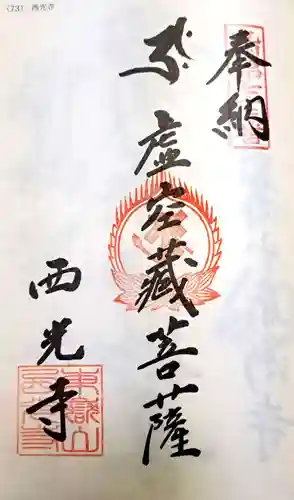 (73) 西光寺
奉納
虚空藏菩薩
西光寺